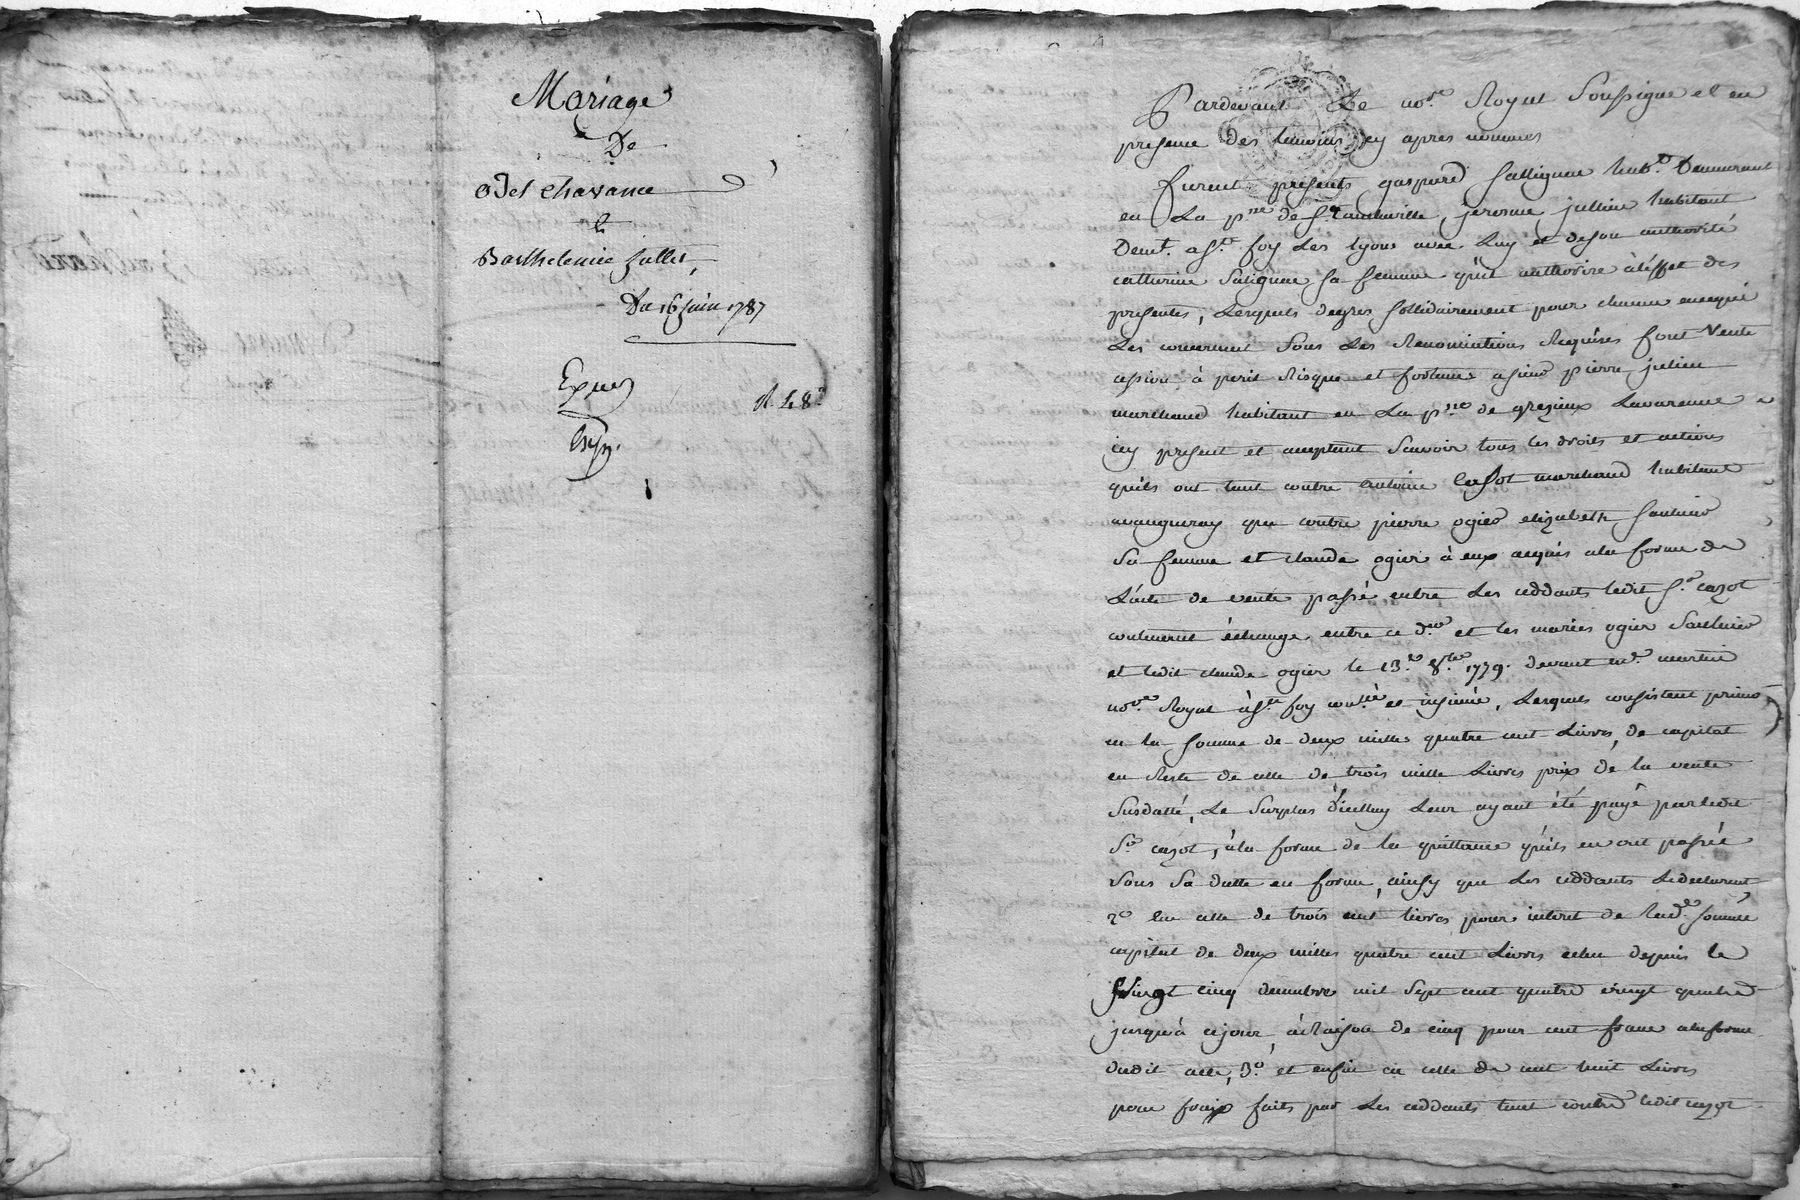 Mariage
De
Odet Chavance
&
Barthelemie Jullet,
Du 16 juin 1787
Exped
R. 48
Pardevant Le no.re Royal Soussigné et en
presence des temoins cy apres nommés
furent présents gaspard Salligneu hab.t Demeurant
en La p.sse de jerosme jullien habitant
Demt. a S.te foy Les lyons avec Luy et de son authorité
catherine Saligneu sa femme qu'il authorise à l'effet des
presentes, Lesquels degres sollidairement pour chacun
Les concernent Sous Les Renonciations Requises font Vente
cession à perit Risque et fortune a sieur pierre julien
marchand habitant en La p.sse de grezieux Lavarenne
icy present et acceptant Scavoir tous les droits et actions
qu'ils ont tant contre Antoine Cazot marchand habitant
a vaugneray que contre pierre ogier elizabeth Saulnier
sa femme et claude ogier à eux acquis a la forme de
L'acte de vente passé entre Les ceddants ledit S.r cazot
contenent échange entre ce d.er et les mariés ogier Saulnier
et ledit claude ogier le 13.e 8.bre 1779. devant m.e martin
no.re Royal à S.te foy con.lé et insinué, Lesquels consistent primo
en la somme de deux milles quatre cent Livres, de capital
en Reste de celle de trois mille Livres prix de la vente
susdatté, Le Surplus d'icelluy Leur ayant été payé par ledit
S.r cazot, à la forme de la quittance qu'ils en ont passée
sous Sa datte en forme, ainsy que Les ceddants Le declarent,
2.o En celle de trois cent livres pour interet de lad.e somme
capital de deux milles quatre cent Livres celui depuis le
Vingt cinq decembre mil Sept cent quatre vingt quatre
jusqu'à ce jour, à Raison de cinq pour cent franc a la forme
dudit acte, 3.o et enfin en celle de cent huit Livres
pour fraix faits par Les ceddants tant contre ledit cazot